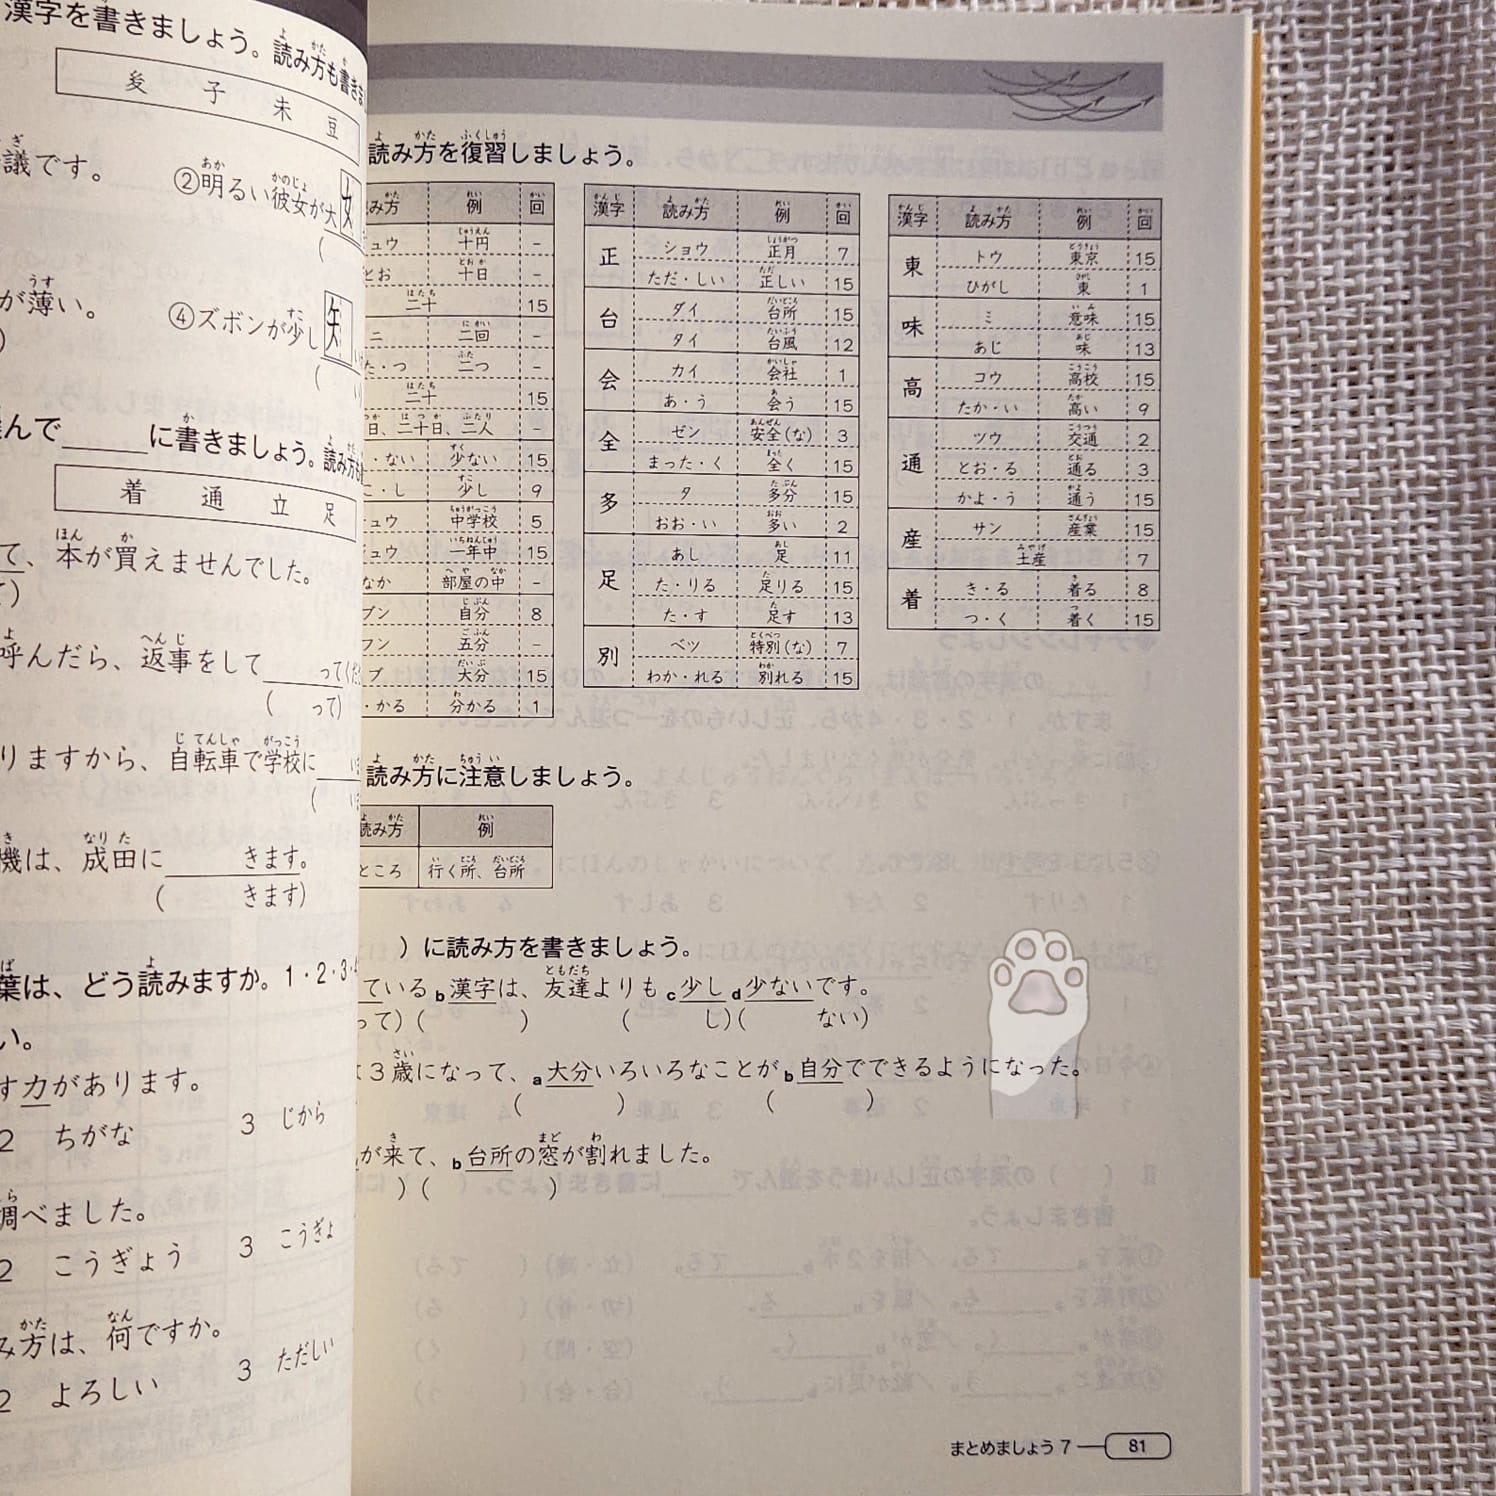 漢字を書きましょう。読み方も書きま
夋 子 未 豆
議です。
②明るい彼女が大
女
が薄い。
④ズボンが少し
矢
んで に書きましょう。読み方も
着 通 立 足
て、本が買えませんでした。
呼んだら、返事をして ってくだ
( って)
りますから、自転車で学校に
機は、成田に きます。
( きます)
葉は、どう読みますか。1・2・3・4
い。
す力があります。
2 ちがな
3 じから
調べました。
2 こうぎょう
3 こうぎょ
み方は、何ですか。
2 よろしい
3 ただしい
読み方を復習しましょう。
み方 例 回
ュウ 十円 -
とお 十日 -
二十 15
ニ 二回 -
た・つ 二つ -
二十 15
日、二十日、二人
・ない 少ない 15
こ・し 少し 9
ュウ 中学校 5
ュウ 一年中 15
なか 部屋の中 -
ブン 自分 8
フン 五分 -
ブ 大分 15
・かる 分かる 1
漢字 読み方 例 回
正 ショウ 正月 7
ただ・しい 正しい 15
台 ダイ 台所 15
タイ 台風 12
会 カイ 会社 1
あ・う 会う 15
全 ゼン 安全(な) 3
まった・く 全く 15
多 タ 多分 15
おお・い 多い 2
足 あし 足 11
た・りる 足りる 15
た・す 足す 13
別 ベツ 特別(な) 7
わか・れる 別れる 15
漢字 読み方 例 回
東 トウ 東京 15
ひがし 東 1
味 ミ 意味 15
あじ 味 13
高 コウ 高校 15
たか・い 高い 9
通 ツウ 交通 2
とお・る 通る 3
かよ・う 通う 15
産 サン 産業 15
土産 7
着 き・る 着る 8
つ・く 着く 15
読み方に注意しましょう。
読み方 例
ところ 行く所、台所
)に読み方を書きましょう。
ているb漢字は、友達よりもc少しd少ないです。
って)( ) ( し)( ない)
3歳になって、a大分いろいろなことがb自分でできるようになった。
( ) ( )
が来て、b台所の窓が割れました。
)( )
まとめましょう 7
81